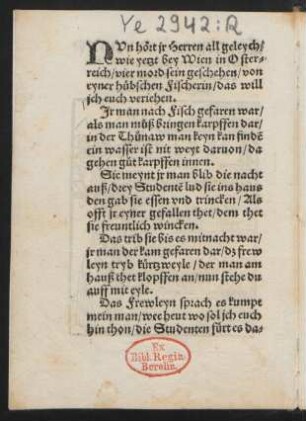 Ye 2942:R
NUn hoͤrt jr Herren all geleych/
wie yetzt bey Wien in Oster⸗
reich/vier mord sein geschehen/von
eyner huͤbschen Fischerin/das will
jch euch veriehen.
Jr man nach Fisch gefaren war/
als man muͤß bringen karpffen dar/
in der Thuͤnaw man keyn kan findẽ
ein wasser ist nit weyt daruon/da
gehen guͤt karpffen innen.
Sie meynt jr man blib die nacht
auß/drey Studentẽ lud sie ins haus
den gab sie essen vnd trincken/Als
offt jr eyner gefallen thet/dem thet
sie freuntlich wincken.
Das trib sie bis es mitnacht war/
jr man der kam gefaren dar/dz frew
leyn tryb kuͤrtzweyle/der man am
hauß thet klopffen an/nun stehe du
auff mit eyle.
Das Frewleyn sprach es kumpt
mein man/wee heut wo sol jch euch
hin thon/die Studenten fuͤrt es da⸗
Ex
Bibl. Regia
Berolin.